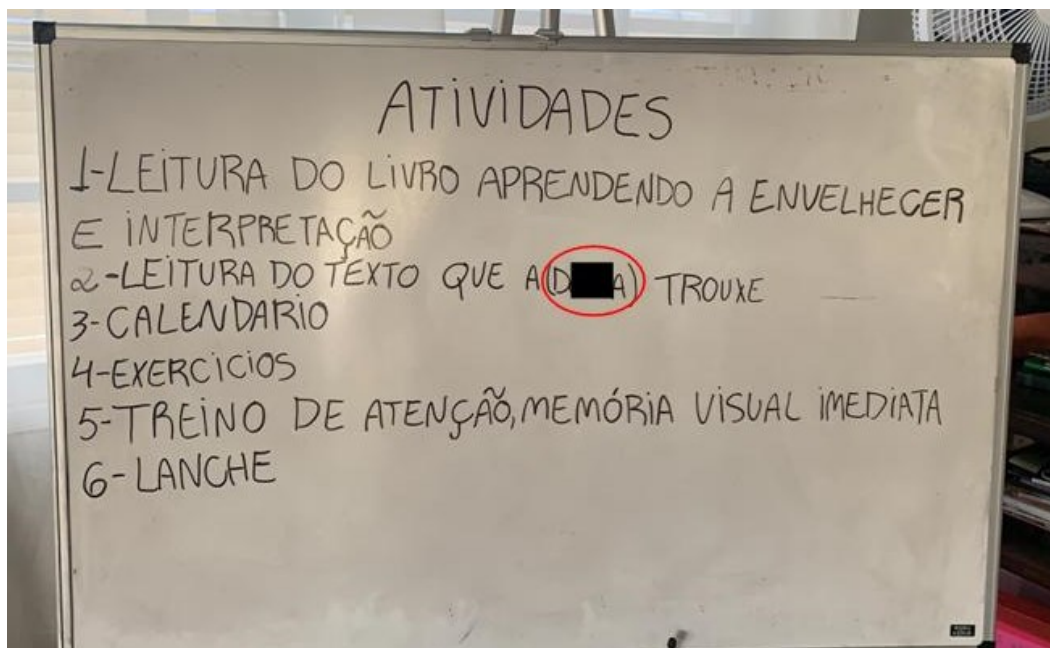 ATIVIDADES
1-LEITURA DO LIVRO APRENDENDO A ENVELHECER
E INTERPRETAÇÃO
2-LEITURA DO TEXTO QUE A (D A) TROUXE
3-CALENDARIO
4-EXERCICIOS
5-TREINO DE ATENÇÃO, MEMÓRIA VISUAL IMEDIATA
6-LANCHE